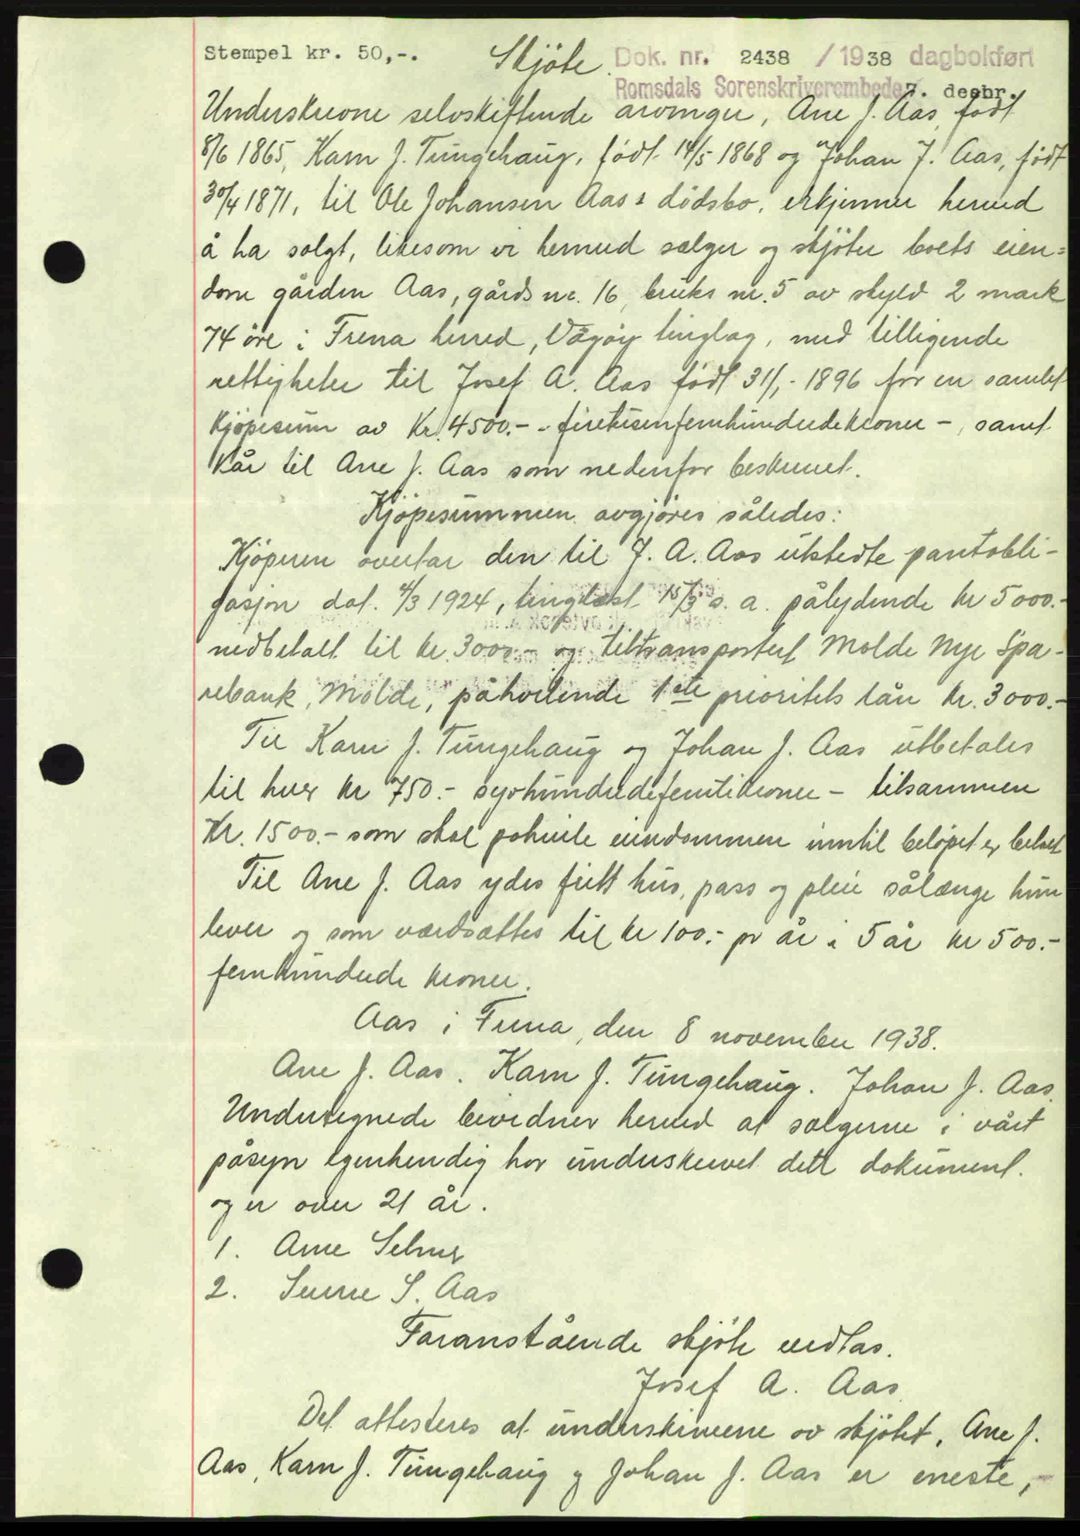 Stempel kr. 50,-. Skjöte. Dok. nr. 2438 / 1938 dagbokført
Romsdals Sorenskriverembede 7. desbr.
Underskrevne selvskiftende arvinger, Ane J. Aas, født
8/6 1865, Karn J. Tungehaug, født 14/5 1868 og Johan J. Aas, født
30/4 1871, til Ole Johansen Aas's dödsbo, erkjenner herved
å ha solgt, likesom vi herved sælger og skjöter boets eien=
dom gården Aas, gårds nr. 16, bruks nr. 5 av skyld 2 mark
74 öre i Frena herred, Vågöy tinglag, med tilligende
rettigheter til Josef A. Aas født 31/1- 1896 for en samlet
Kjöpesum av Kr. 4500.- - firetusenfemhundredekroner -, samt
kår til Ane J. Aas som nedenfor beskrevet.
Kjöpesummen avgjöres således:
Kjöperen overtar den til J. A. Aas utstedte pantobli-
gasjon dat. 4/3 1924, tinglæst 15/3 s. a. pålydende kr 5000.-
nedbetalt til kr. 3000.- og tiltransportert Molde Nye Spa-
rebank, Molde, påhvilende 1ste prioritets lån kr. 3000.-
Til Karn J. Tungehaug og Johan J. Aas utbetales
til hver kr 750.- syvhundredefemtikroner - tilsammen
Kr. 1500.- som skal påhvile eiendommen inntil belöpet er betalt
Til Ane J. Aas ydes fritt hus, pass og pleie sålænge hun
lever og som værdsættes til kr 100.- pr år i 5 år kr 500.-
femhundrede kroner.
Aas i Frena, den 8 november 1938.
Ane J. Aas. Karn J. Tungehaug. Johan J. Aas.
Undertegnede bevidner herved at sælgerne i vårt
påsyn egenhendig har underskrevet dette dokument.
og er over 21 år.
1. Arne Selmer
2. Sverre S. Aas
Foranstående skjöte vedtas.
Josef A. Aas
Det attesteres at underskriverne av skjötet, Ane J.
Aas, Karn J. Tungehaug og Johan J. Aas er eneste,